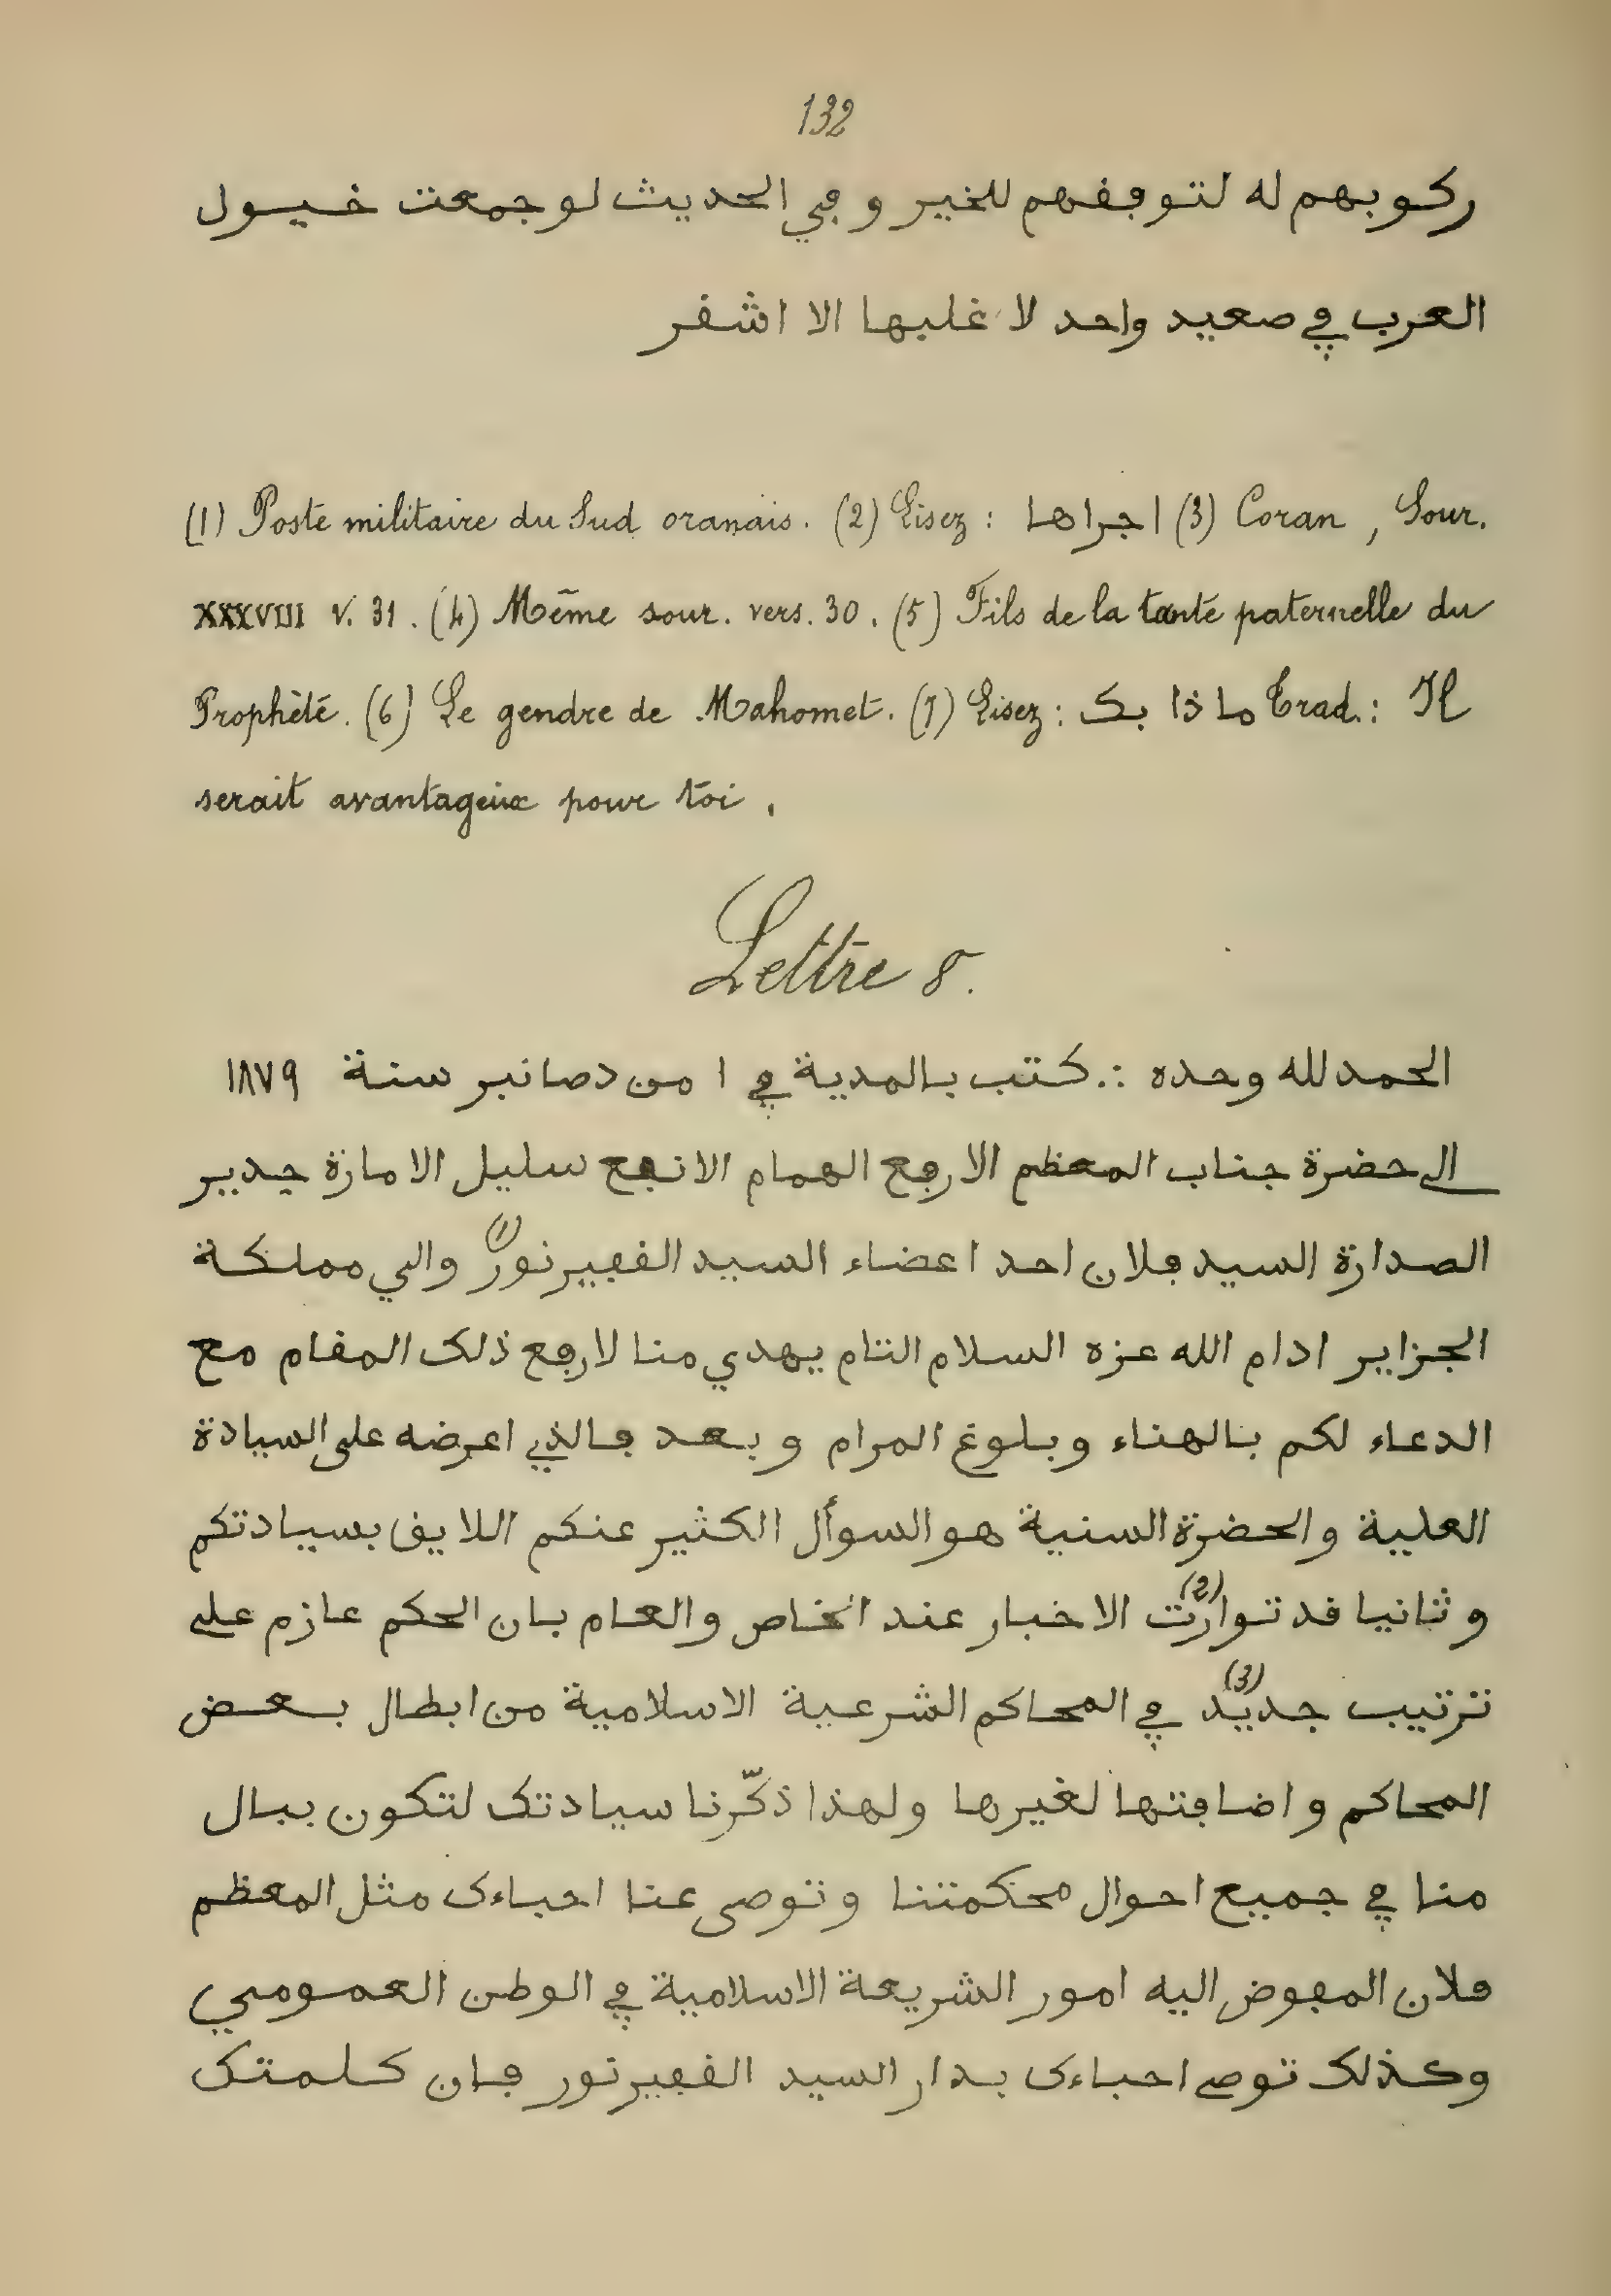 132
ركوبهم له لتوفقهم للخير وفي الحديث لو جمعت خيول
العرب في صعيد واحد لا غلبها الا اشقر
(1) Poste militaire du Sud oranais. (2) Lisez : اجراها (3) Coran , Sour.
XXXVIII v. 31 . (4) Même sour. vers. 30 . (5) Fils de la tante paternelle du
Prophète. (6) Le gendre de Mahomet. (7) Lisez : ما ذا بك Trad. : Il
serait avantageux pour toi .
Lettre 8.
الحمد لله وحده .:. كتب بالمدية في ١ من دصانبر سنة ١٨٧٩
الى حضرة جناب المعظم الارفع الهمام الانفع سليل الامارة جدير
الصدارة السيد فلان احد اعضاء السيد القبيرنور (1) والي مملكة
الجزاير ادام الله عزه السلام التام يهدي منا لارفع ذلك المقام مع
الدعاء لكم بالهناء وبلوغ المرام وبعد فالذي اعرضه على السيادة
العلية والحضرة السنية هو السوأل الكثير عنكم اللايق بسيادتكم
وثانيا قد توارت (2) الاخبار عند الخاص والعام بان الحكم عازم على
ترتيب جديد (3) في المحاكم الشرعية الاسلامية من ابطال بعض
المحاكم واضافتها لغيرها ولهذا ذكّرنا سيادتك لتكون ببال
منا في جميع احوال محكمتنا وتوصى عنا احباءك مثل المعظم
فلان المفوض اليه امور الشريعة الاسلامية في الوطن العمومي
وكذلك توصى احباءك بدار السيد القبيرنور فان كلمتك